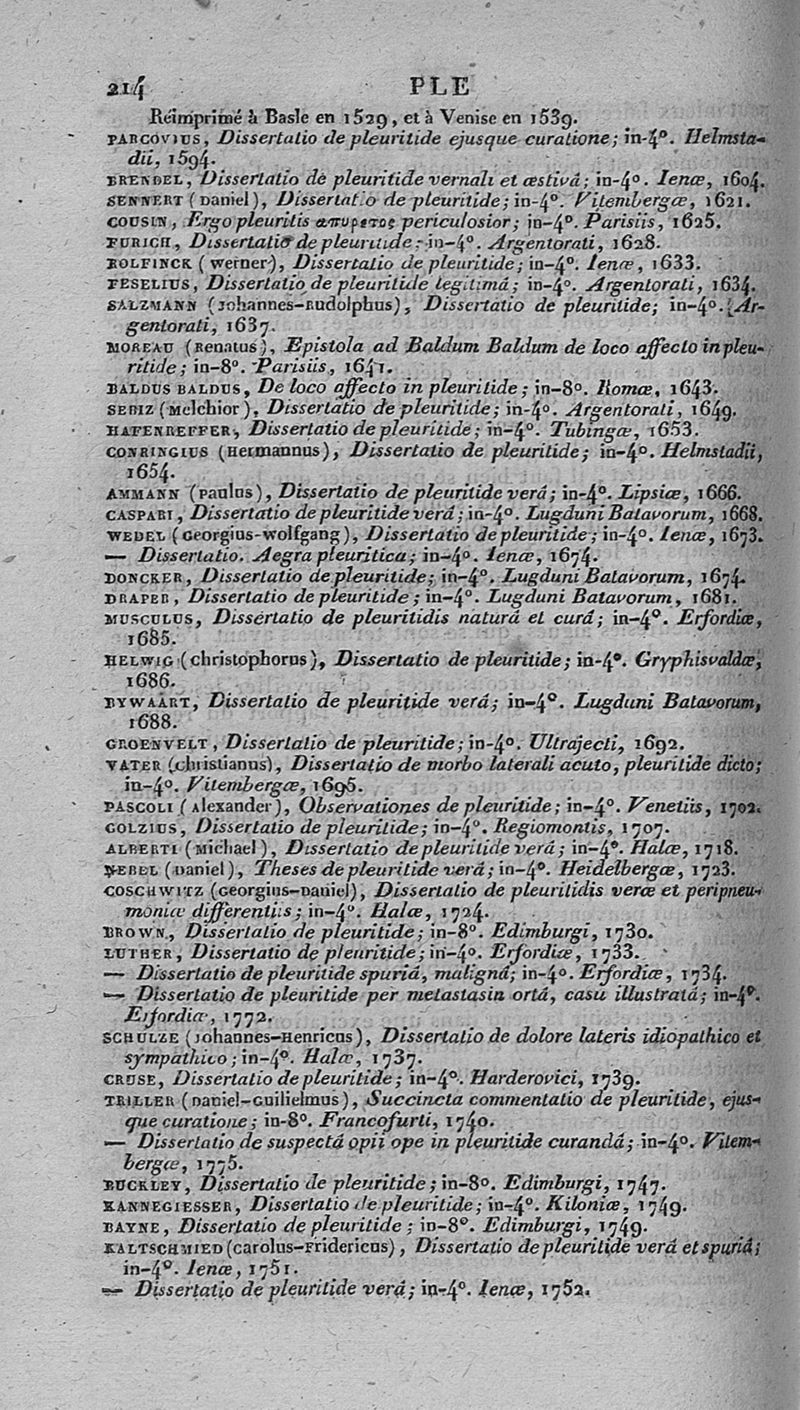 214 PLE
Réimprimé à Basle en 1529, et à Venise en 1539.
PARCOVIUS, Dissertatio de pleuritide ejusque curatione; in-4°. Helmsta-
dii, 1594.
BRENDEL, Dissertatio de pleuritide vernali et æstivâ; in-4°. Ienæ, 1604.
SENNERT (Daniel), Dissertatio de pleuritide; in-4°. Vitembergæ, 1621.
COUSIN, Ergo pleuritis απυρετος periculosior; in-4°. Parisiis, 1625.
FURICH, Dissertatio de pleuritide; in-4°. Argentorati, 1628.
ROLFINCK (Werner), Dissertatio de pleuritide; in-4°. Ienæ, 1633.
FESELIUS, Dissertatio de pleuritide legitimâ; in-4°. Argentorati, 1634.
SALZMANN (Johannes-Rudolphus), Dissertatio de pleuritide; in-4°. Ar-
gentorati, 1637.
MOREAU (Renatus), Epistola ad Baldum Baldum de loco affecto in pleu-
ritide; in-8°. Parisiis, 1641.
BALDUS BALDUS, De loco affecto in pleuritide; in-8°. Romæ, 1643.
SEBIZ (Melchior), Dissertatio de pleuritide; in-4°. Argentorati, 1649.
HAFENREFFER, Dissertatio de pleuritide; in-4°. Tubingæ, 1653.
CONRINGIUS (Hermannus), Dissertatio de pleuritide; in-4°. Helmstadii,
1654.
AMMANN (Paulus), Dissertatio de pleuritide verâ; in-4°. Lipsiæ, 1666.
CASPARI, Dissertatio de pleuritide verâ; in-4°. Lugduni Batavorum, 1668.
WEDEL (Georgius-Wolfgang), Dissertatio de pleuritide; in-4°. Ienæ, 1673.
— Dissertatio. Aegra pleuritica; in-4°. Ienæ, 1674.
DONCKER, Dissertatio de pleuritide; in-4°. Lugduni Batavorum, 1674.
DRAPER, Dissertatio de pleuritide; in-4°. Lugduni Batavorum, 1681.
MUSCULUS, Dissertatio de pleuritidis naturâ et curâ; in-4°. Erfordiæ,
1685.
HELWIG (Christophorus), Dissertatio de pleuritide; in-4°. Gryphisvaldæ,
1686.
BYWAART, Dissertatio de pleuritide verâ; in-4°. Lugduni Batavorum,
1688.
GROENVELT, Dissertatio de pleuritide; in-4°. Ultrajecti, 1692.
VATER (Christianus), Dissertatio de morbo laterali acuto, pleuritide dicto;
in-4°. Vitembergæ, 1695.
PASCOLI (Alexander), Observationes de pleuritide; in-4°. Venetiis, 1702.
GOLZIUS, Dissertatio de pleuritide; in-4°. Regiomontis, 1707.
ALBERTI (Michael), Dissertatio de pleuritide verâ; in-4°. Halæ, 1718.
NEBEL (Daniel), Theses de pleuritide verâ; in-4°. Heidelbergæ, 1723.
COSCHWITZ (Georgius-Daniel), Dissertatio de pleuritidis veræ et peripneu-
moniæ differentiis; in-4°. Halæ, 1724.
BROWN, Dissertatio de pleuritide; in-8°. Edimburgi, 1730.
LUTHER, Dissertatio de pleuritide; in-4°. Erfordiæ, 1733.
— Dissertatio de pleuritide spuriâ, malignâ; in-4°. Erfordiæ, 1734.
— Dissertatio de pleuritide per metastasin ortâ, casu illustratâ; in-4°.
Erfordiæ, 1772.
SCHULZE (Johannes-Henricus), Dissertatio de dolore lateris idiopathico et
sympathico; in-4°. Halæ, 1737.
CRUSE, Dissertatio de pleuritide; in-4°. Harderovici, 1739.
TRILLER (Daniel-Guilielmus), Succincta commentatio de pleuritide, ejus-
que curatione; in-8°. Francofurti, 1740.
— Dissertatio de suspectâ opii ope in pleuritide curandâ; in-4°. Vitem-
bergæ, 1775.
BUCKLEY, Dissertatio de pleuritide; in-8°. Edimburgi, 1747.
KANNEGIESSER, Dissertatio de pleuritide; in-4°. Kiloniæ, 1749.
BAYNE, Dissertatio de pleuritide; in-8°. Edimburgi, 1749.
KALTSCHMIED (Carolus-Fridericus), Dissertatio de pleuritide verâ et spuriâ;
in-4°. Ienæ, 1751.
— Dissertatio de pleuritide verâ; in-4°. Ienæ, 1752.